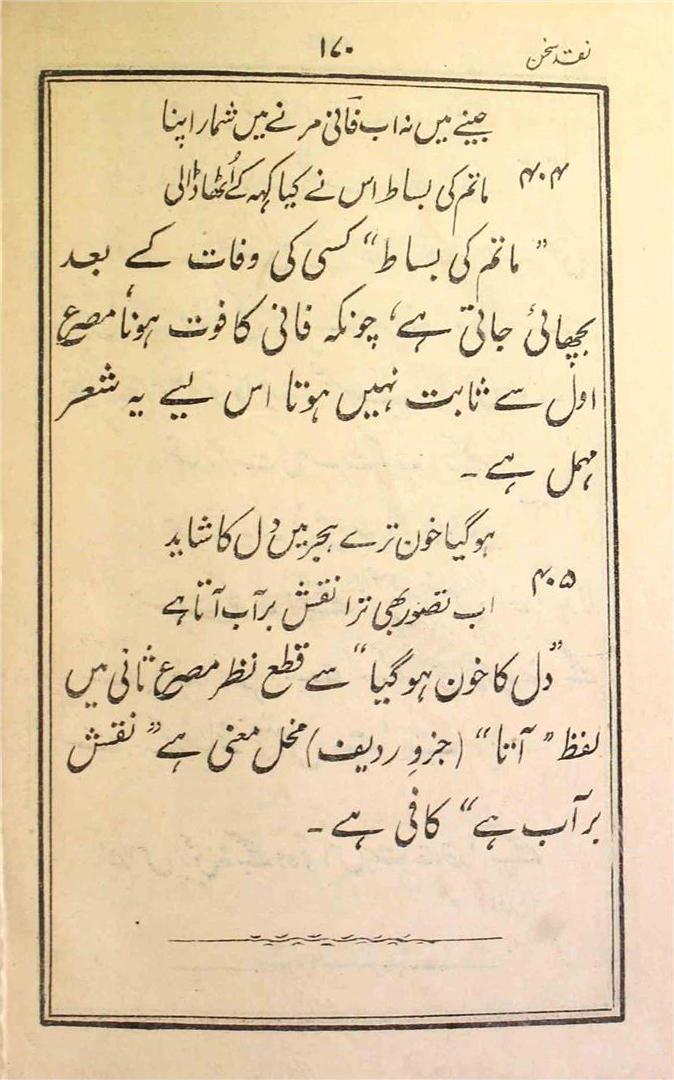 نقد سخن
۱۷۰
جینے میں نہ اب فانؔی مرنے میں شمار اپنا
۴۰۴
ماتم کی بساط اس نے کیا کہہ کے اُٹھا ڈالی
” ماتم کی بساط“ کسی کی وفات کے بعد
بچھائی جاتی ہے، چونکہ فانی کا فوت ہونا، مصرع
اول سے ثابت نہیں ہوتا اس لیے یہ شعر
مہمل ہے ۔
ہو گیا خون ترے ہجر میں دل کا شاید
۴۰۵
اب تصور بھی ترا نقش بر آب آتا ہے
”دل کا خون ہو گیا“ سے قطع نظر مصرع ثانی میں
لفظ ” آتا“ (جزوِ ردیف) مخل معنی ہے ” نقش
بر آب ہے“ کافی ہے ۔